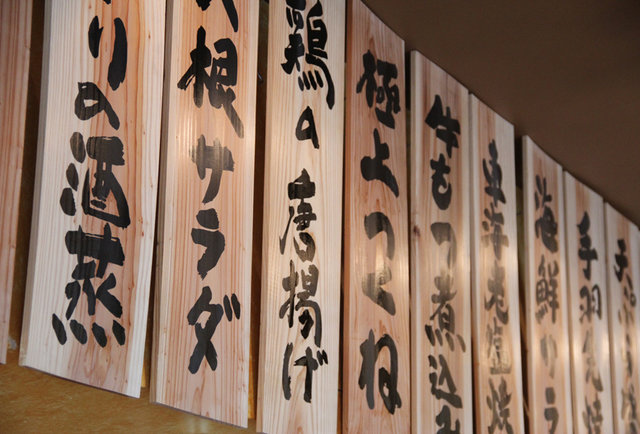 りの酒蒸
大根サラダ
鶏の唐揚げ
極上つくね
牛もつ煮込み
車海老塩焼
海鮮サラ
手羽先焼